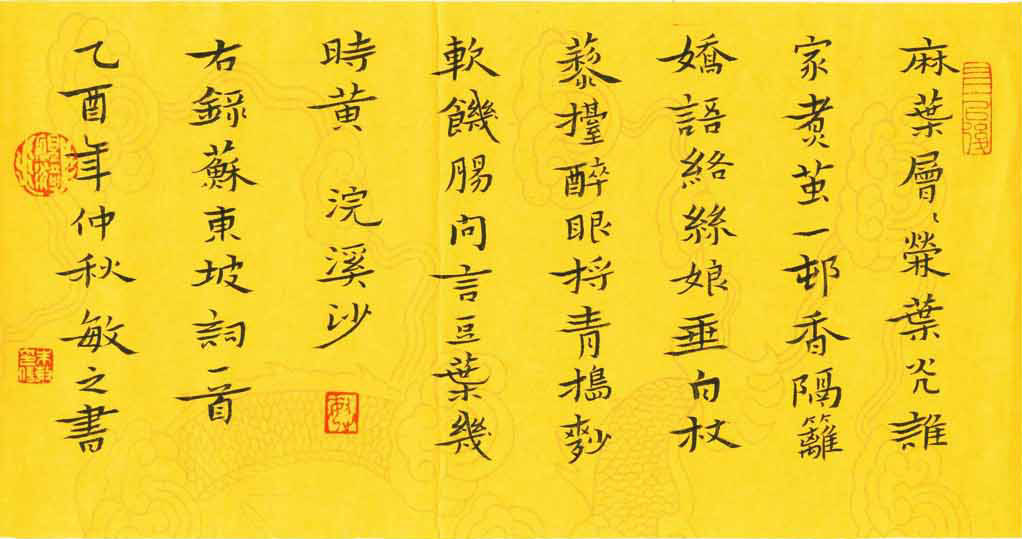 麻葉層〻檾葉光誰
家煮茧一邨香隔籬
嬌語絡絲娘垂白杖
藜擡醉眼捋青搗麨
軟饑腸問言豆葉幾
時黃 浣溪沙
右錄蘇東坡詞一首
乙酉年仲秋敏之書